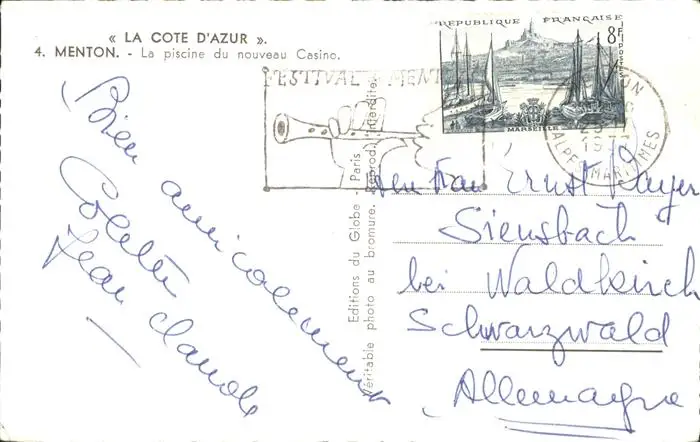 « LA COTE D'AZUR ».
4. MENTON. - La piscine du nouveau Casino.
REPUBLIQUE FRANÇAISE
8F
POSTES
MARSEILLE
FESTIVAL MENT
ALPES MARITIMES
Bien amicalement
Colette
Jean Claude
Editions du Globe - Paris
Véritable photo au bromure. Reprod. interdite.
Ernst
Siensbach
bei Waldkirch
Schwarzwald
Allemagne